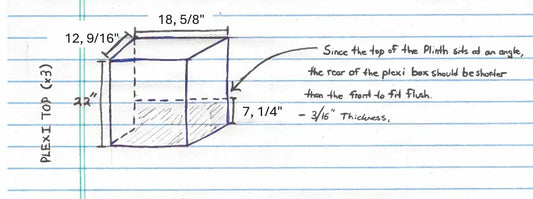 18, 5/8"
12, 9/16"
PLEXI TOP (x3)
22"
7, 1/4"
Since the top of the Plinth sits at an angle,
the rear of the plexi box should be shorter
than the front to fit flush.
- 3/16" Thickness.